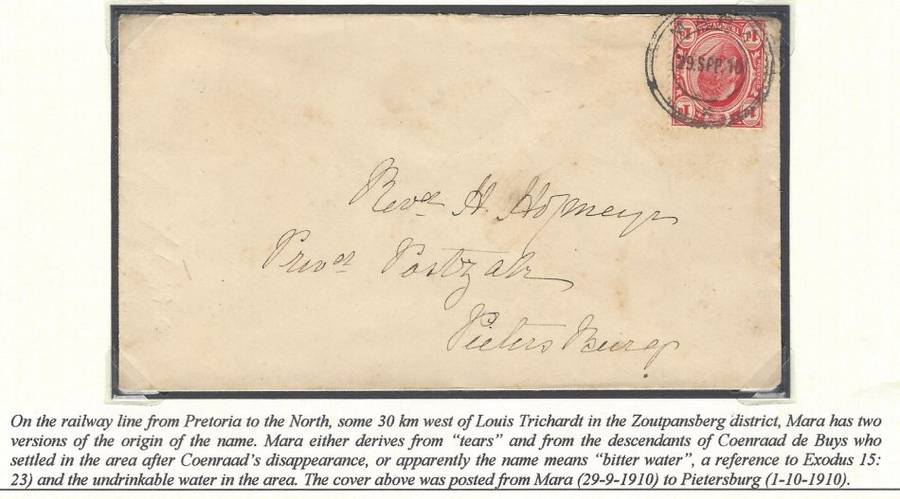 29.SEP.10
Revd H. Hofmeyr
Privat Postzak
Pieters Burg.
On the railway line from Pretoria to the North, some 30 km west of Louis Trichardt in the Zoutpansberg district, Mara has two
versions of the origin of the name. Mara either derives from “tears” and from the descendants of Coenraad de Buys who
settled in the area after Coenraad’s disappearance, or apparently the name means “bitter water”, a reference to Exodus 15:
23) and the undrinkable water in the area. The cover above was posted from Mara (29-9-1910) to Pietersburg (1-10-1910).